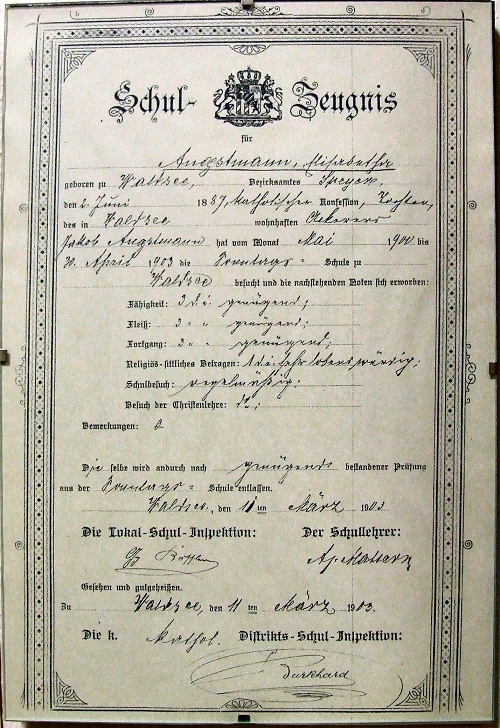 Schul- Zeugnis
für
Angstmann, Elisabetha
geboren zu Waldsee, Bezirksamtes Speyer,
den 2. Juni 1887, katholischer Konfession, Tochter,
des in Waldsee wohnhaften Ackerers
Jakob Angstmann hat vom Monat Mai 1900 bis
30. April 1903 die Sonntags- Schule zu
Waldsee besucht und die nachstehenden Noten sich erworben:
Fähigkeit: 3 d. i. genügend;
Fleiß: 3 " " genügend;
Fortgang: 3 " " genügend;
Religiös-sittliches Betragen: 1 d. i. sehr lobenswürdig;
Schulbesuch: regelmäßig;
Besuch der Christenlehre: do;
Bemerkungen:
Die selbe wird andurch nach genügend bestandener Prüfung
aus der Sonntags- Schule entlassen.
Waldsee, den 11ten März 1903
Die Lokal-Schul-Inspektion: Der Schullehrer:
Mattern
Gesehen und gutgeheißen.
Zu Waldsee, den 11ten März 1903.
Die k. kathol. Distrikts-Schul-Inspektion:
Burkhard